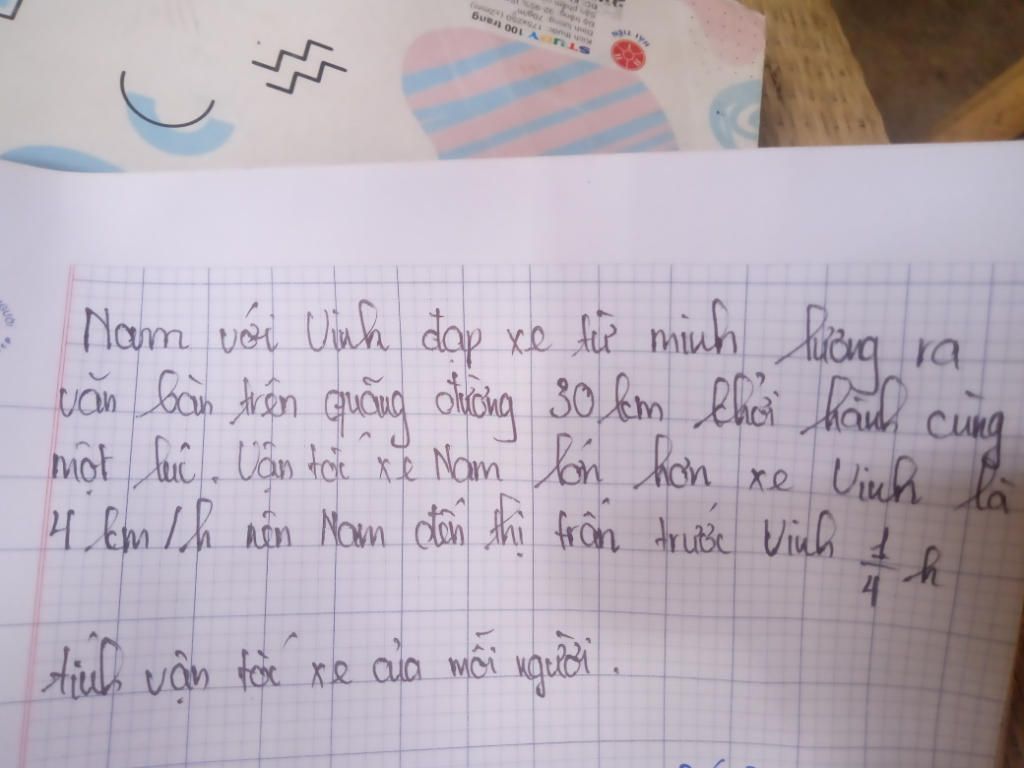 STUDY 100 trang
Kích thước: 175x250 (±2mm)
HẢI TIẾN
Nam với Vinh đạp xe từ minh lương ra
văn bàn trên quãng đường 30 km khởi hành cùng
một lúc. Vận tốc xe Nam lớn hơn xe Vinh là
4 km/h nên Nam đến thị trấn trước Vinh 1/4 h
tính vận tốc xe của mỗi người.